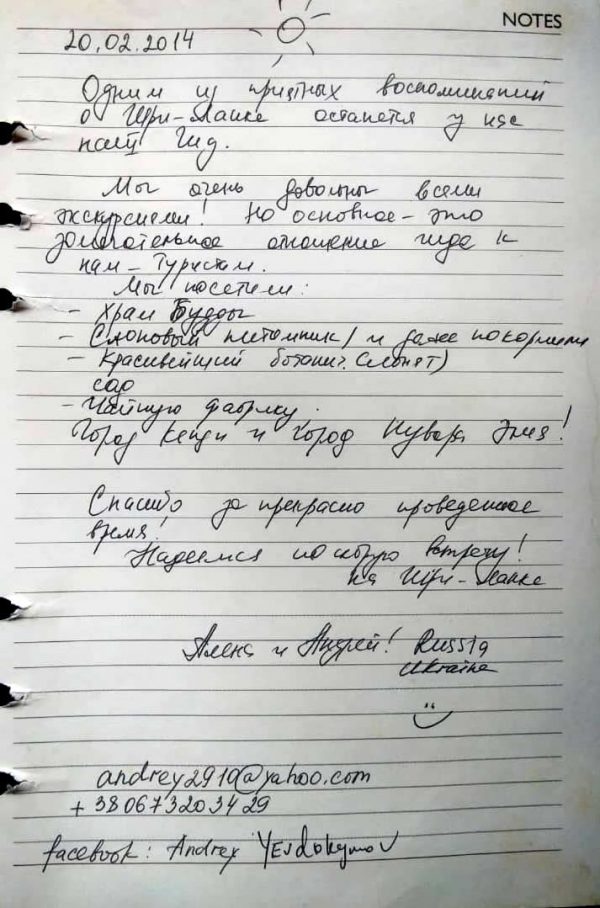 NOTES
20.02.2014
Одним из приятных воспоминаний
о Шри-Ланке останется у нас
наш Гид.
Мы очень довольны всеми
экскурсиями! Но основное - это
замечательное отношение гида к
нам - Туристам.
Мы посетили:
- Храм Будды
- Слоновый питомник / и даже покормили
- Красивейший ботанич. слонят)
сад
- Чайную фабрику.
Город Кенди и город Нувара Элия!
Спасибо за прекрасно проведенное
время!
Надеемся на скорую встречу!
на Шри-Ланке
Алена и Андрей! Russia
Ukraine
andrey2910@yahoo.com
+380673203429
facebook: Andrey Yevdokymov